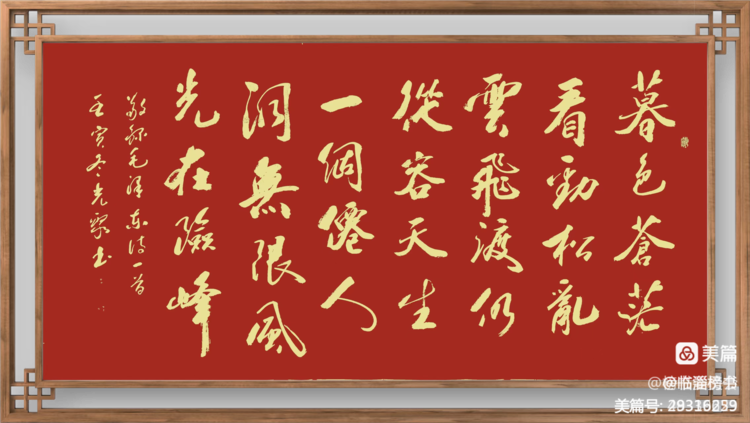 暮色蒼茫
看勁松亂
雲飛渡仍
從容天生
一個僊人
洞無限風
光在險峰
敬錄毛澤東詩一首
壬寅冬光书
美篇
美篇号: